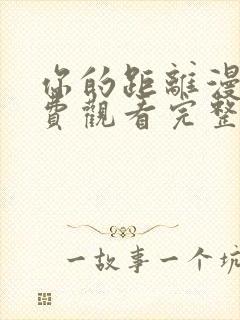 你的距離漫
費觀看完整
一故事一个坑